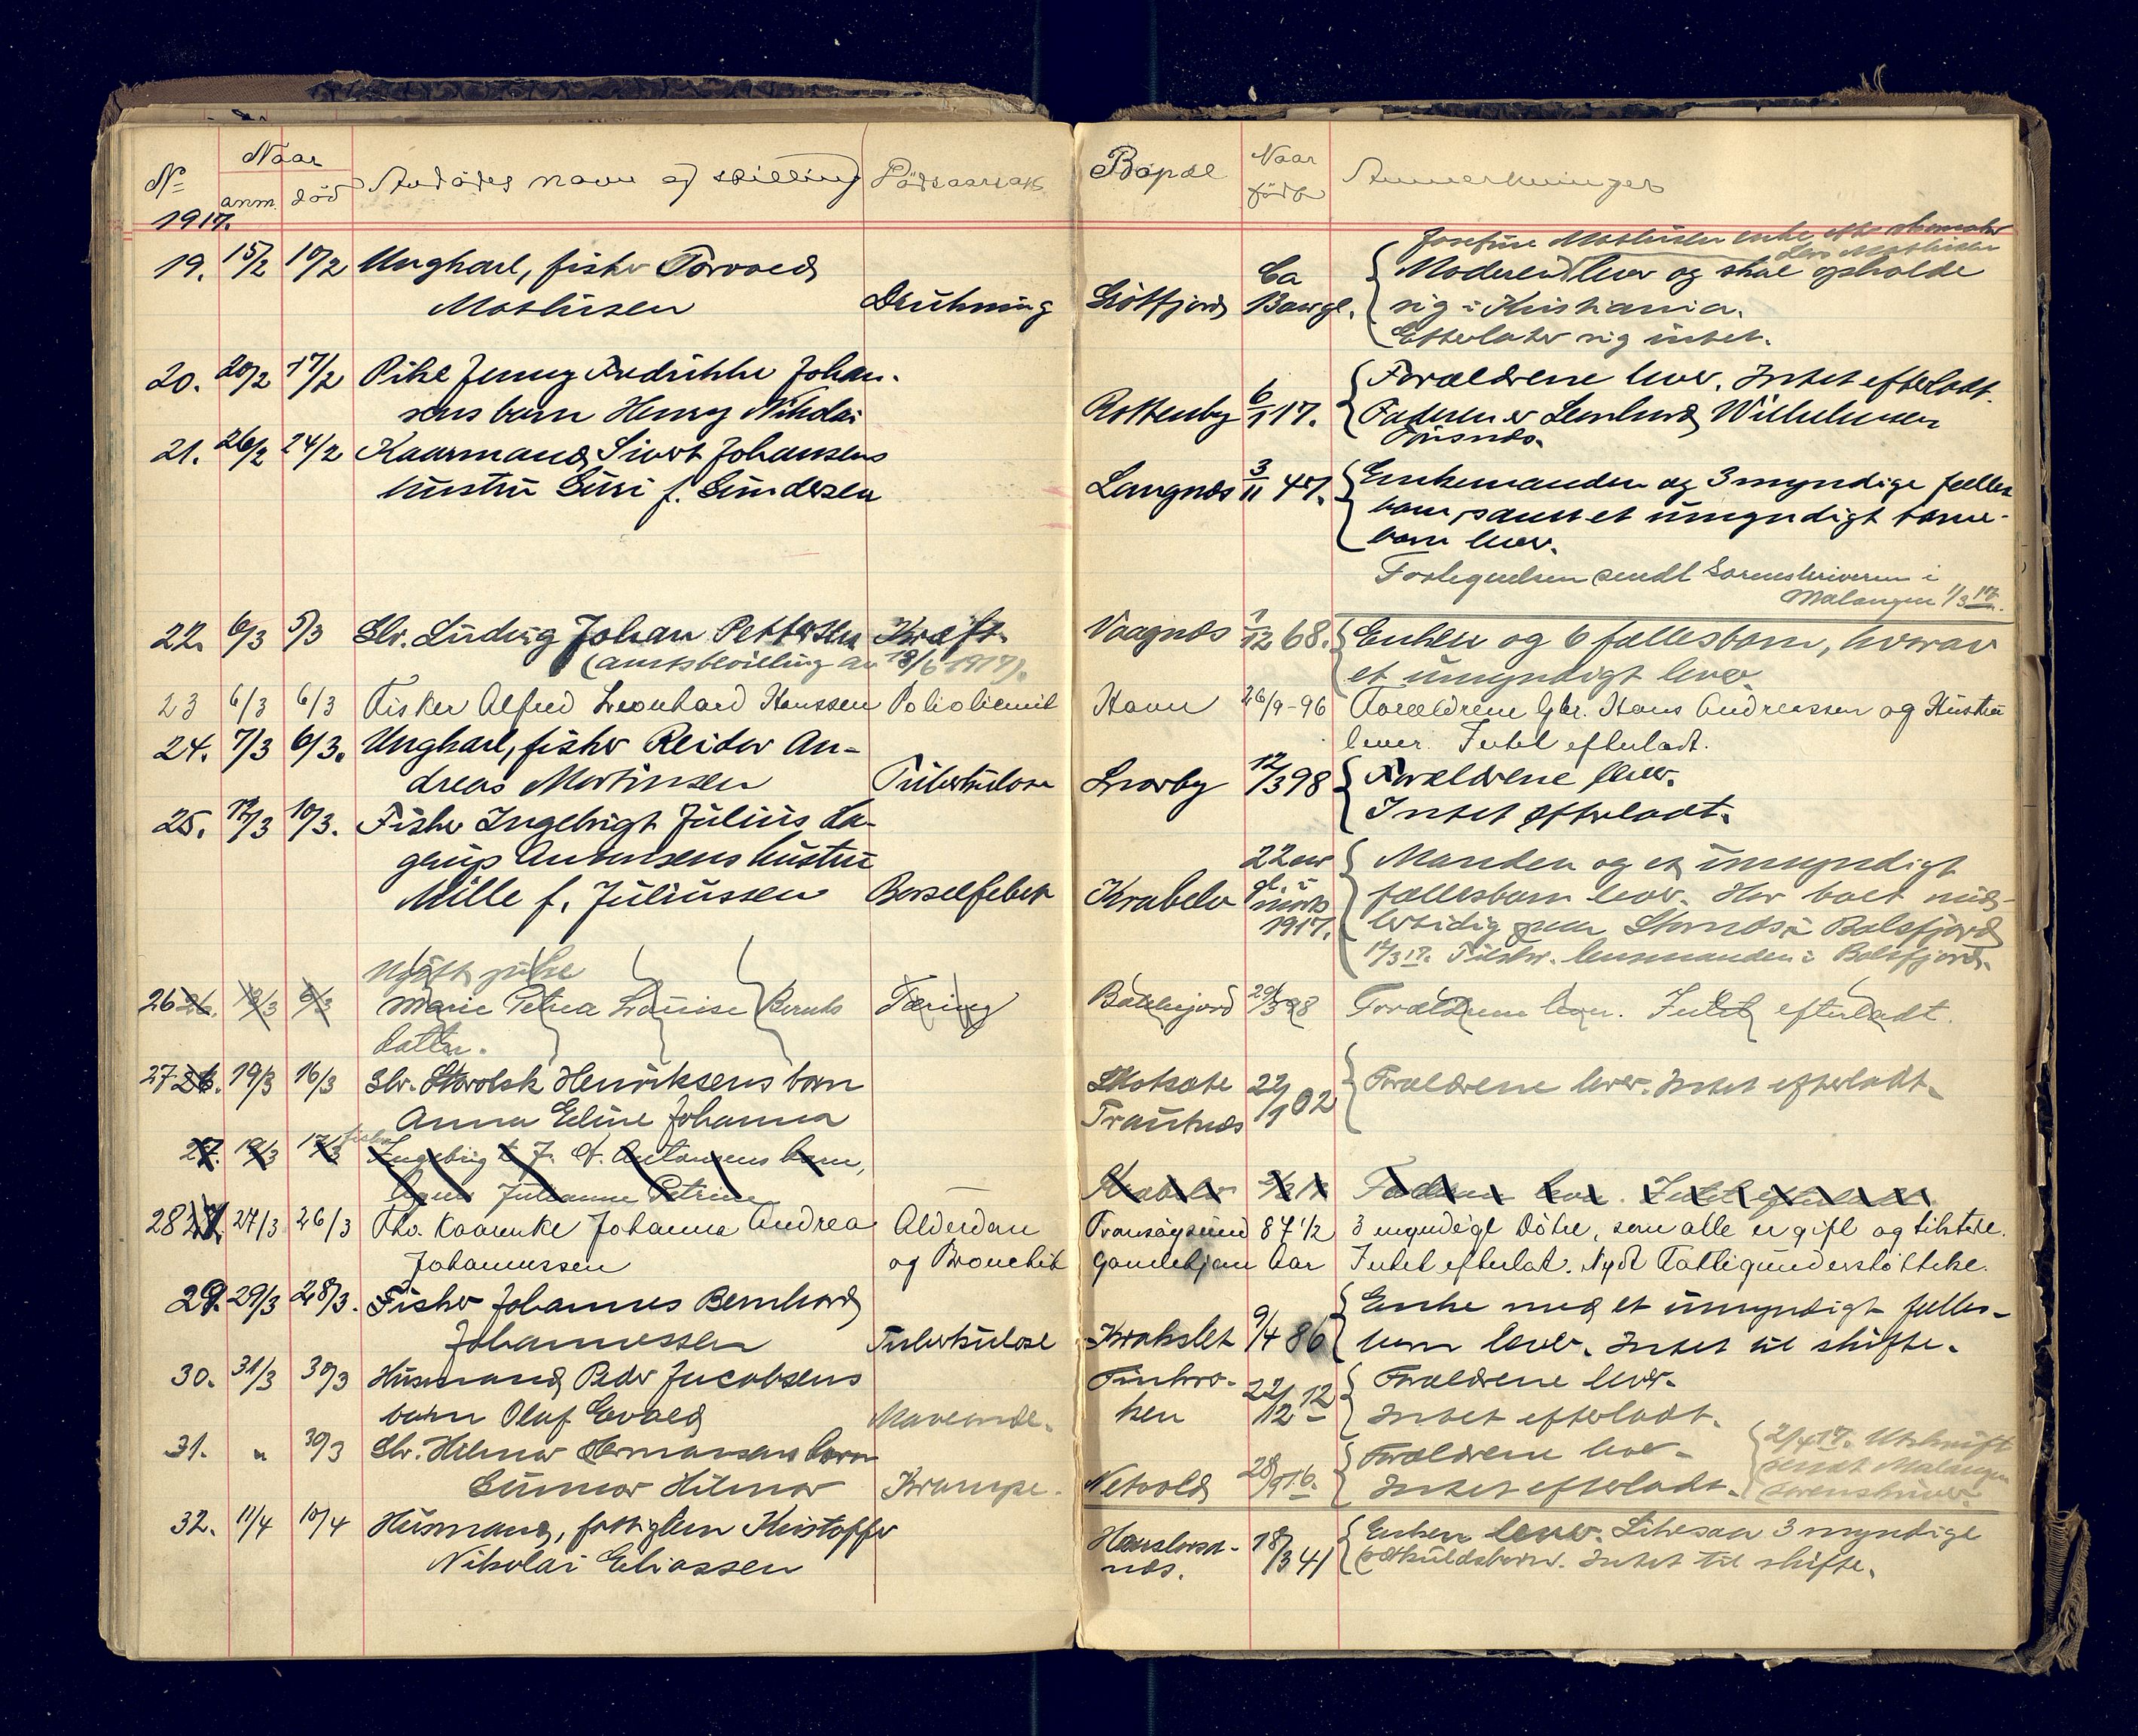 No Naar Avdødes navn og stilling Dødsaarsak Bopæl Naar Anmerkninger
anm. død født
1917.
Josefine Mathisen enke efter skomaker
Lars Mathisen
19. 15/2 10/2 Ungkarl, fisker Torvald Ca Moderen lever og skal opholde
Mathisen Drukning Grøtfjord 13 aar gl. sig i Kristiania.
Efterlater sig intet.
20. 20/2 17/2 Pike Jenny Fredrikke Johan- Forældrene lever. Intet efterladt.
sens barn Henry Nikolai Rottenby 6/1 17. Faderen er Wilhelmsen
21. 26/2 24/2 Kaarmand Sivert Johansens Enkemanden og 3 myndige fælles
hustru Guri f. Gundersen Langnes 3/11 47. barn, samt et umyndigt barne-
barn lever.
Fortegnelsen sendt Sorenskriveren i
Malangen 1/3 17.
22. 6/3 5/3 Slr. Ludvig Johan Pettersen Kræft. Vaagnes 1/12 68. Enken og 6 fællesbarn, hvorav
(amtsbevilling av 18/6 1917). et umyndigt lever.
23 6/3 6/3 Fisker Alfred Leonhard Hanssen Havn 26/9-96 Forældrene Gbr. Hans Andreassen og Hustru
lever. Intet efterladt.
24. 7/3 6/3. Ungkarl, fisker Reidar An-
dreas Martinsen Tuberkulose 12/3 98 Forældrene lever.
Intet efterladt.
25. 12/3 10/3. Fisker Ingebrigt Julius La-
gerup Antonsens hustru 22 aar Manden og et umyndigt
Mille f. Juliussen Barselfeber Krabelv gl. i mars 1917. fællesbarn lever. Har boet mid-
lertidig paa Stornes i Balsfjord
12/3 17. Tilskr. lensmanden i Balsfjord.
Ugift pike
26 26. 12/3 6/3 Marie Petrea Louise Bernts Tæring 29/3 98 Forældrene lever. Intet efterladt.
datter.
27 26. 19/3 16/3 Slr. Henriksens barn 22/1 02 Forældrene lever. Intet efterladt.
Anna Eline Johanna
27. 19/3 17/3 fisker Ingebrigt J. L. Antonsens barn,
Agnes Julianne Petrine Krabelv Faderen lever. Intet efterladt.
28 27. 27/3 26/3 Fhv. Kaarenke Johanna Andrea Alderdom Tromsøysund 87 1/2 3 myndige Døtre, som alle er gift og tilstede.
Johannessen og Bronchit Gamlehjem Aar Intet efterlat. Nydt Fattigunderstøttelse.
29. 29/3 28/3. Fisker Johannes Bernhard Enke med et umyndigt fælles-
Johannessen Tuberkulose Krokslet 9/4 86 barn lever. Intet til skifte.
30. 31/3 30/3 Husmand Peder Jacobsens Finkro- 22/12 12 Forældrene lever.
barn Olaf Evald ken Intet efterladt.
31. " 30/3 Slr. Hilmar Hermansens barn Forældrene lever. 2/4 17. Utskrift
Gunnar Hilmar Krampe. 28/9 16. Intet efterladt. sendt Malangen
sorenskriver.
32. 11/4 10/4 Husmand, fattiglem Kristoffer 18/3 41 Enken lever. Likesaa 3 myndige
Nikolai Eliassen særkuldsbarn. Intet til skifte.